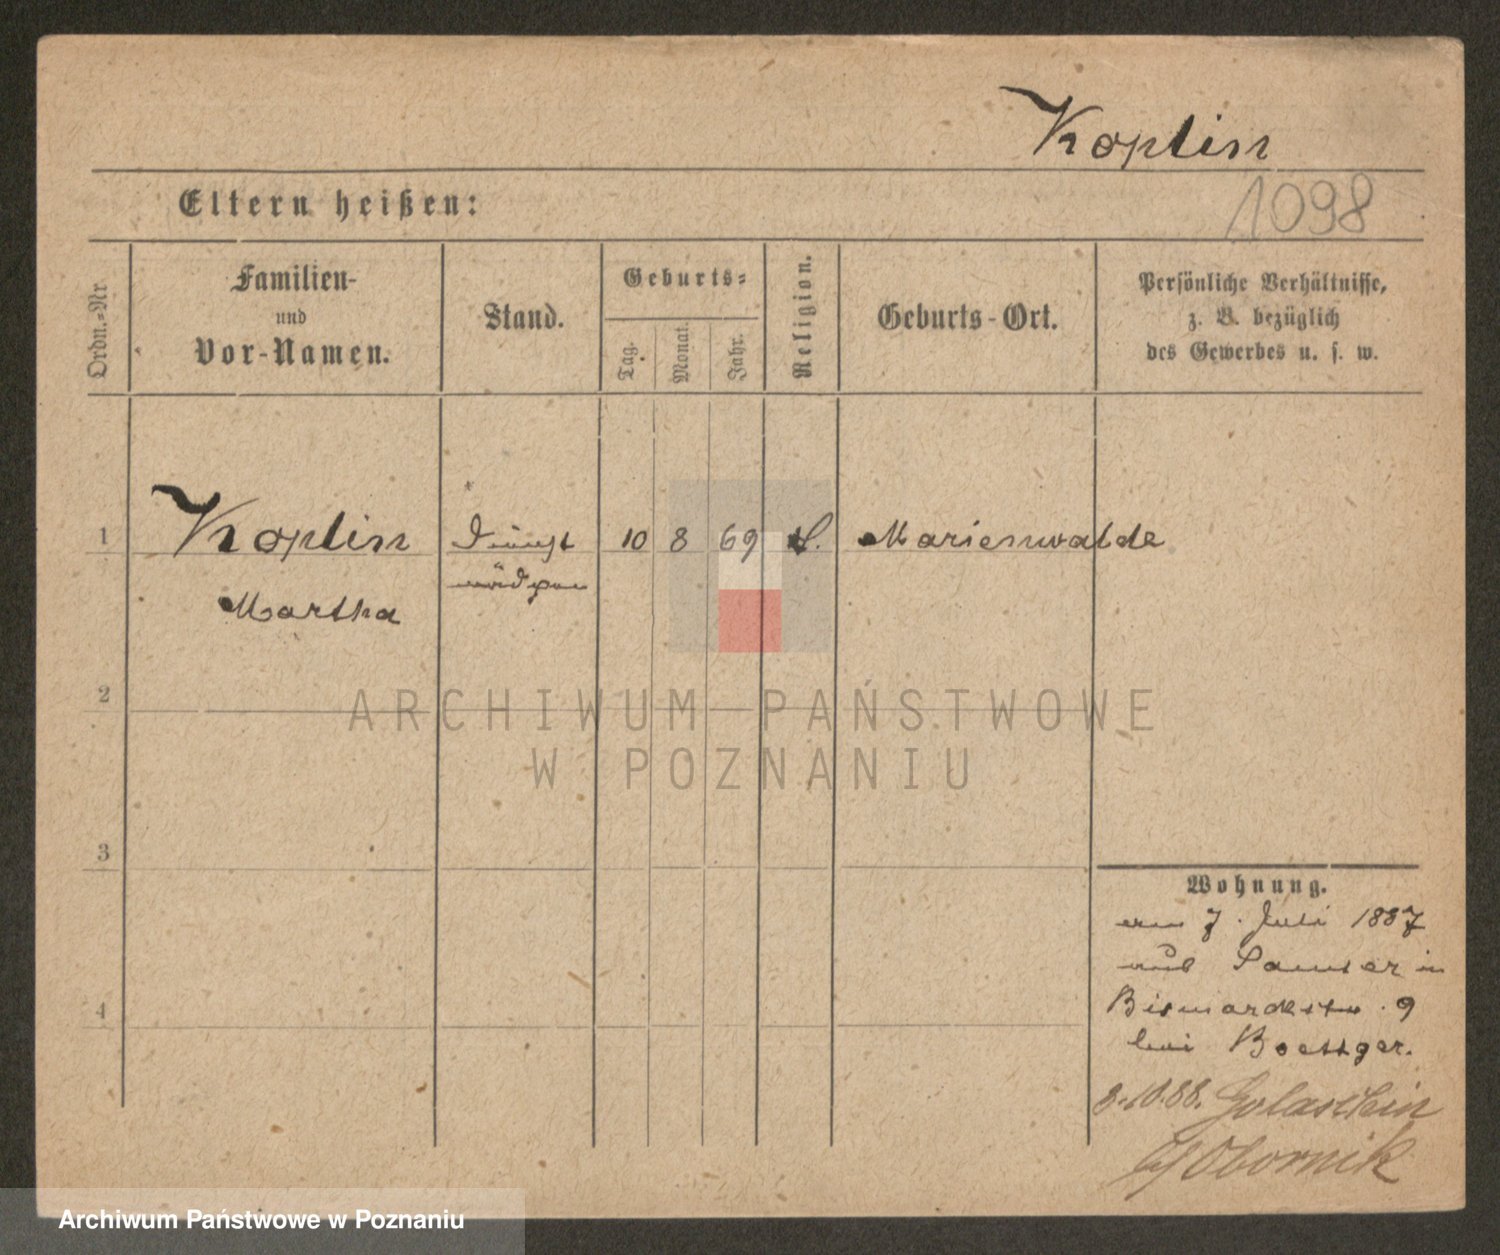 Koplin
Eltern heißen:
1098
Ordn.-Nr.
Familien-
und
Vor-Namen.
Stand.
Geburts-
Tag.
Monat.
Jahr.
Religion.
Geburts-Ort.
Persönliche Verhältnisse,
z. B. bezüglich
des Gewerbes u. s. w.
1 Koplin Dienst 10 8 69 Marienwalde
mädchen
Martha
2
ARCHIWUM PAŃSTWOWE
W POZNANIU
3
Wohnung.
am 7. Juli 1887
aus Samter in
4
Bismarckstr. 9
bei Boettger.
8.10.88.
Obornik
Archiwum Państwowe w Poznaniu